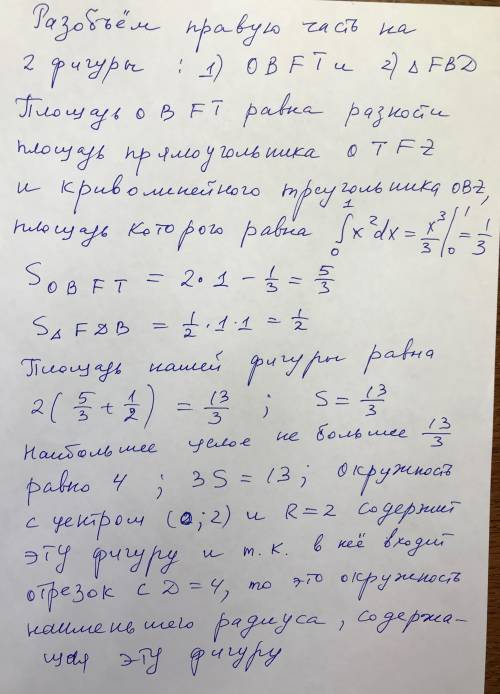 Разобъём правую часть на
2 фигуры : 1) OBFT и 2) △ FBD
Площадь OBFT равна разности
площадь прямоугольника OTFZ
и криволинейного треугольника OBZ,
площадь которого равна ∫₀¹ x²dx = x³/3 |₀¹ = 1/3
S OBFT = 2·1 − 1/3 = 5/3
S △FDB = 1/2 · 1 · 1 = 1/2
Площадь нашей фигуры равна
2(5/3 + 1/2) = 13/3 ; S = 13/3
Наибольшее целое не большее 13/3
равно 4 ; 3S = 13 ; окружность
с центром (0;2) и R=2 содержит
эту фигуру и т.к. в неё входит
отрезок с D=4, то это окружность
наименьшего радиуса, содержа-
щая эту фигуру